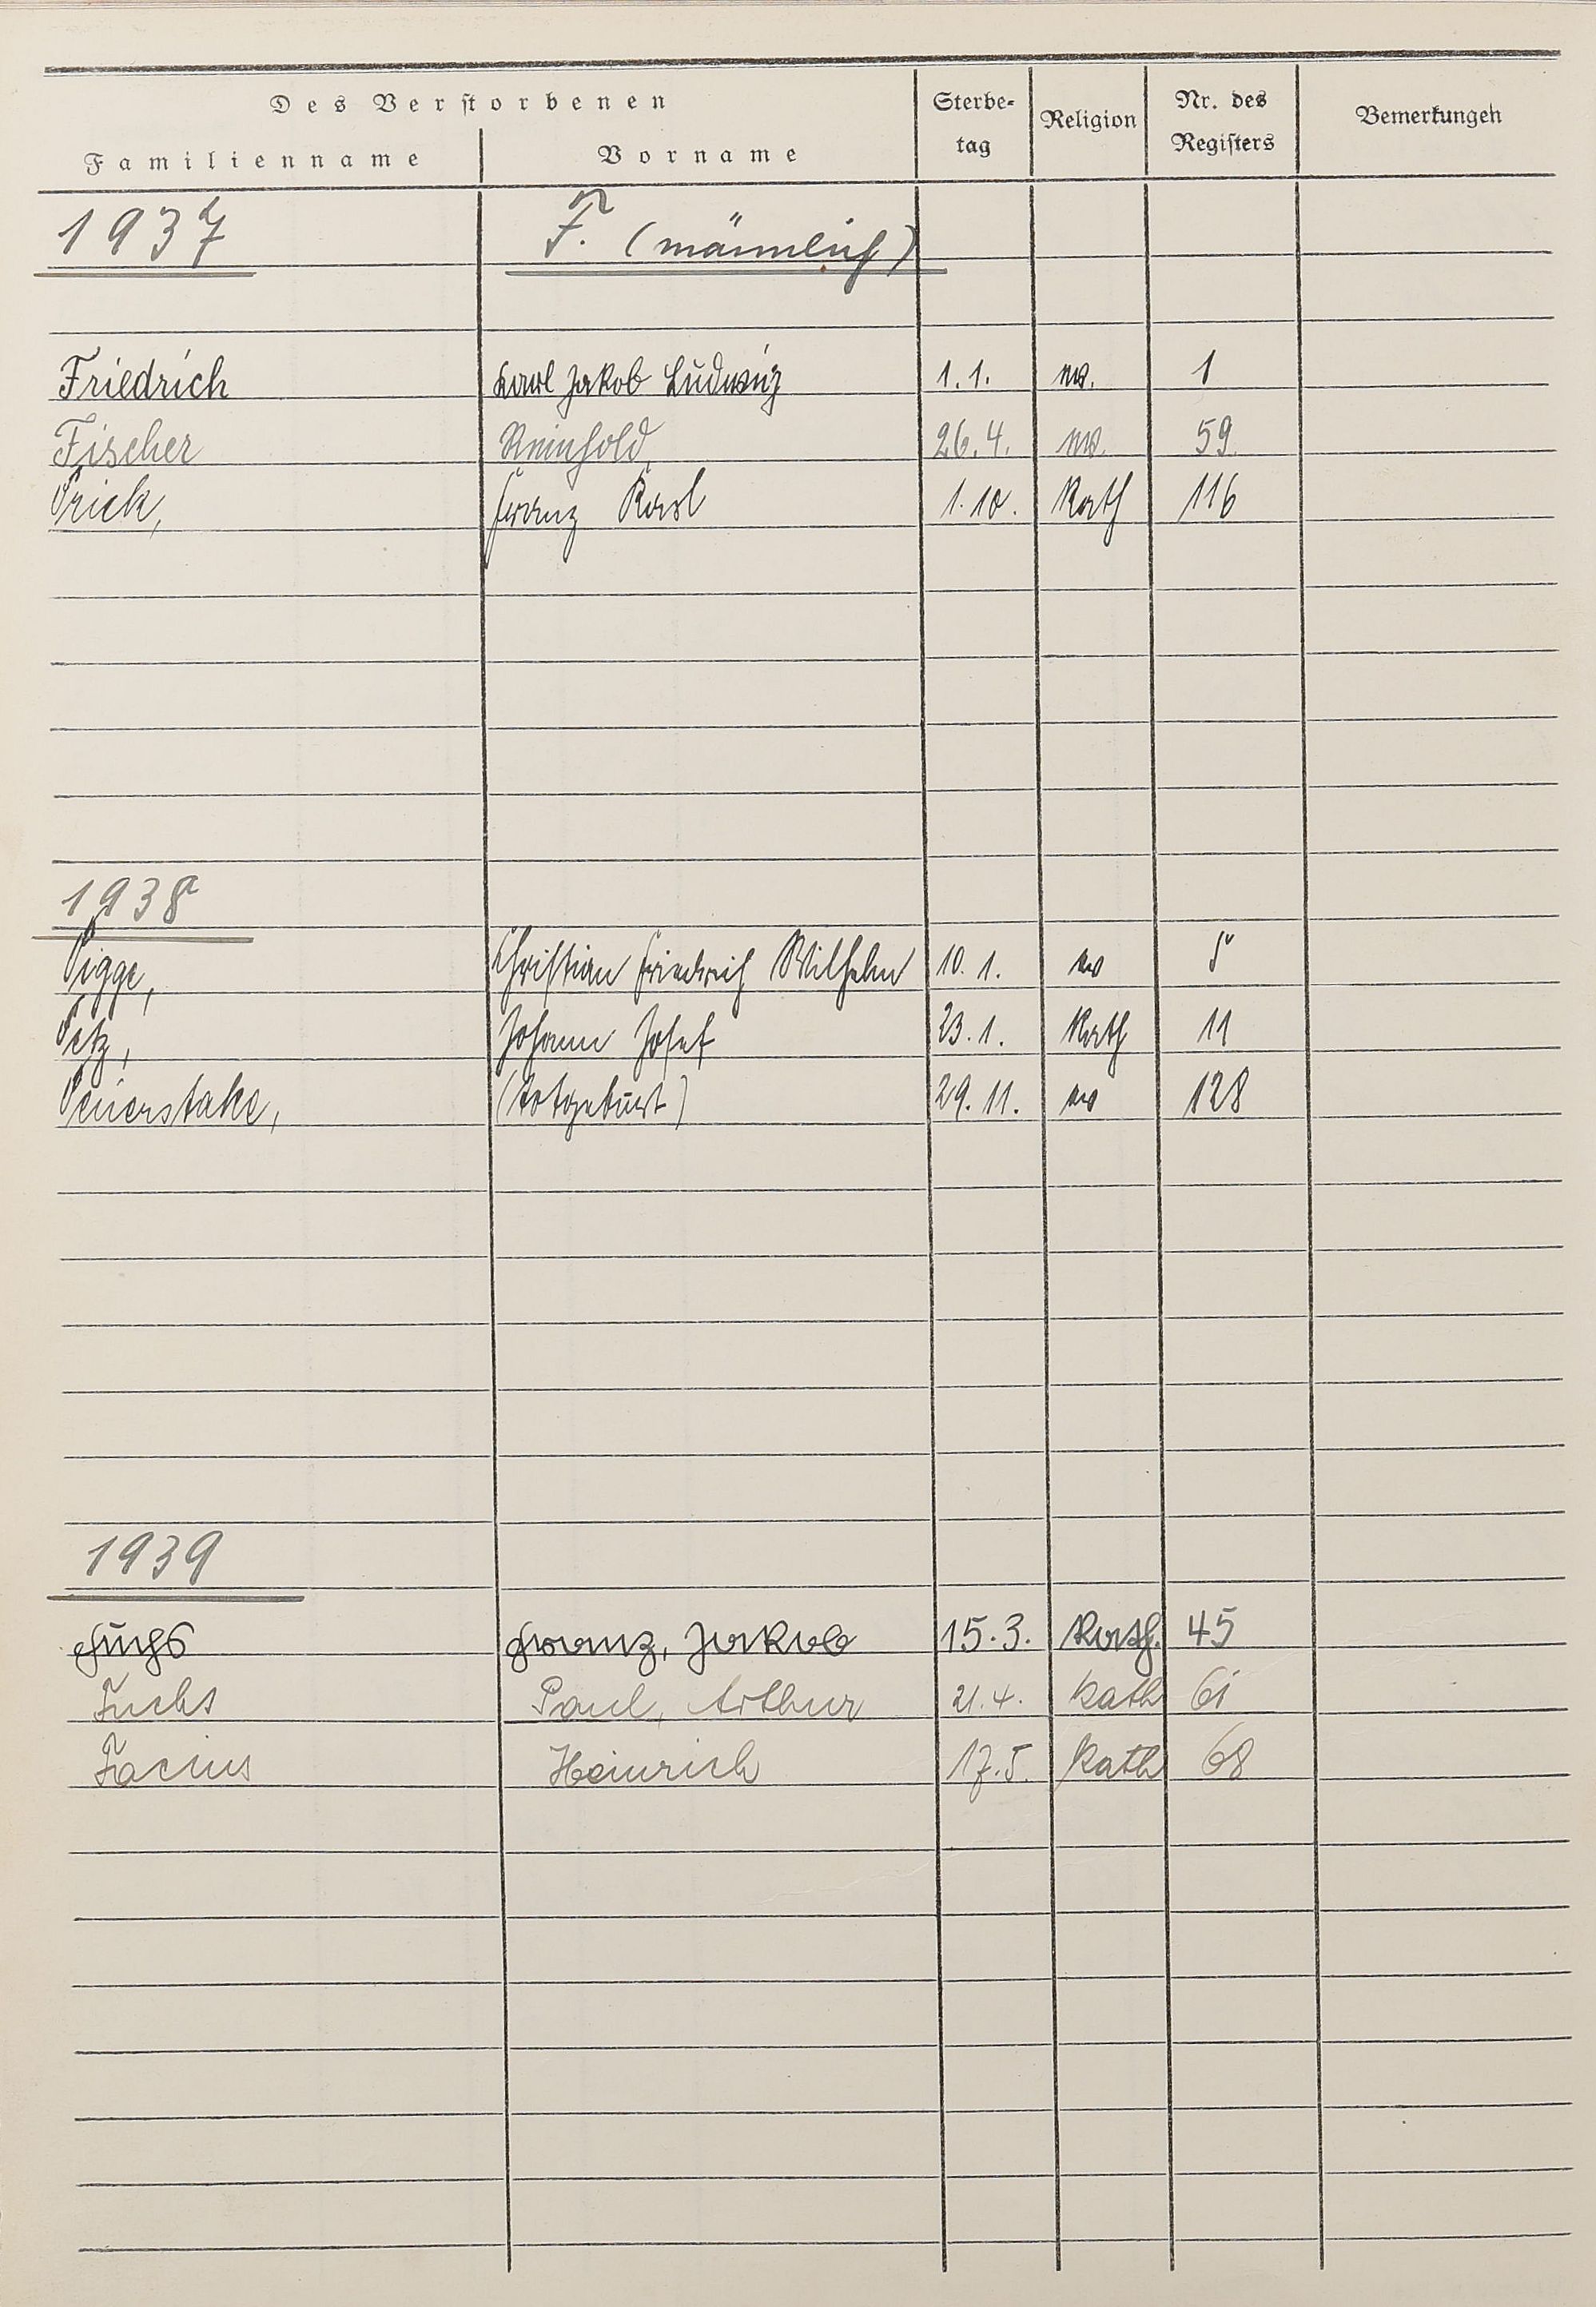 Des Verstorbenen
Familienname Vorname Sterbe-
tag Religion Nr. des
Registers Bemerkungen
1937 F. (männlich)
Friedrich Karl Jakob Ludwig 1.1. ev. 1
Fischer Reinhold 26.4. ev. 59
Frick, Franz Karl 1.10. Kath 116
1938
Figge, Christian Friedrich Wilhelm 10.1. ev 5
Fetz, Johann Josef 23.1. Kath 11
Feuerstake, (Totgeburt) 29.11. ev 128
1939
Fuchs Franz, Jakob 15.3. Kath. 45
Fuchs Paul, Arthur 21.4. Kath 61
Facius Heinrich 17.5. Kath 68